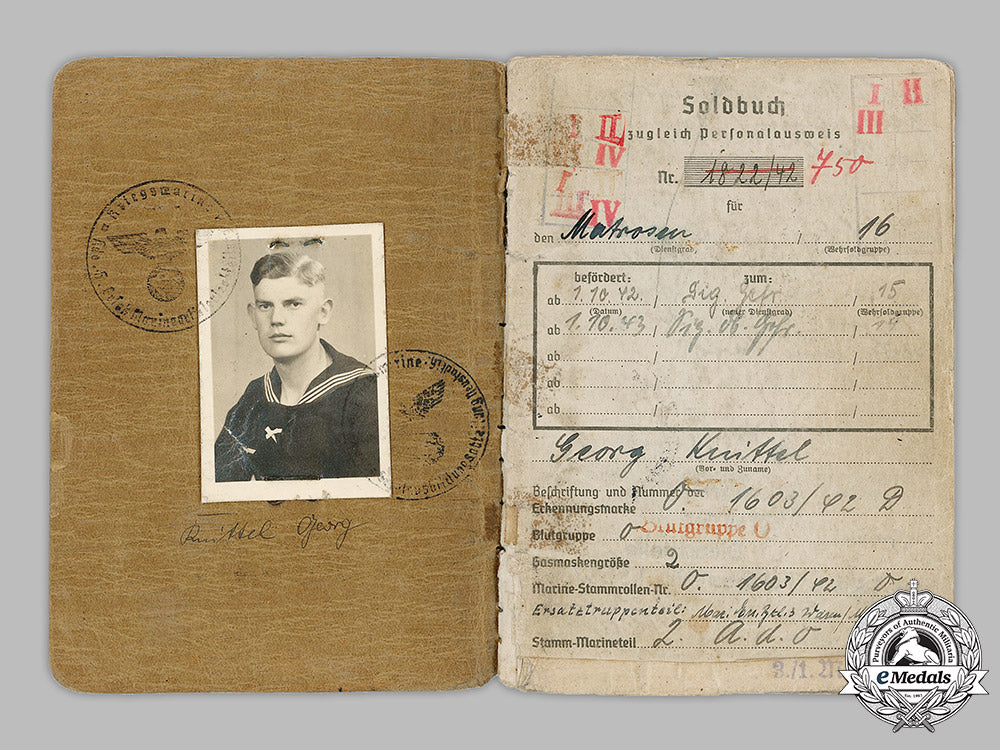 Kriegsmarine
Knittel Georg
I II
III
I II
IV
I
III IV
Soldbuch
zugleich Personalausweis
Nr. 1822/42 750
für
den Matrosen / 16
(Dienstgrad) (Wehrsoldgruppe)
befördert: zum:
ab 1.10.42. / Gefr. / 15
(Datum) (neuer Dienstgrad) (Wehrsoldgruppe)
ab 1.10.43 /
ab / /
ab / /
ab / /
Georg Knittel
(Vor- und Zuname)
Beschriftung und Nummer der
Erkennungsmarke O. 1603/42 D
Blutgruppe O Blutgruppe O
Gasmaskengröße 2
Marine-Stammrollen-Nr. O. 1603/42 D
Ersatztruppenteil:
Stamm-Marineteil 2. A.d.O
Purveyors of Authentic Militaria
eMedals
Est. 1967